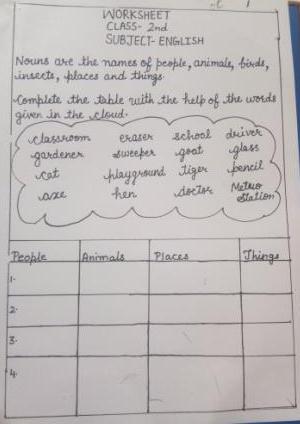 WORKSHEET
CLASS- 2nd
SUBJECT- ENGLISH
Nouns are the names of people, animals, birds,
insects, places and things.
Complete the table with the help of the words
given in the cloud.
classroom eraser school driver
gardener sweeper goat glass
cat playground tiger pencil
axe hen doctor Metro Station
People Animals Places Things
1.
2.
3.
4.